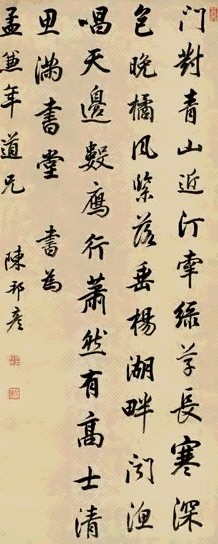 門對青山近汀牽綠草長寒深
包晚橘風緊落垂楊湖畔聞漁
唱天邊數鴈行蕭然有高士清
思滿書堂 書為
孟年道兄 陳邦彥